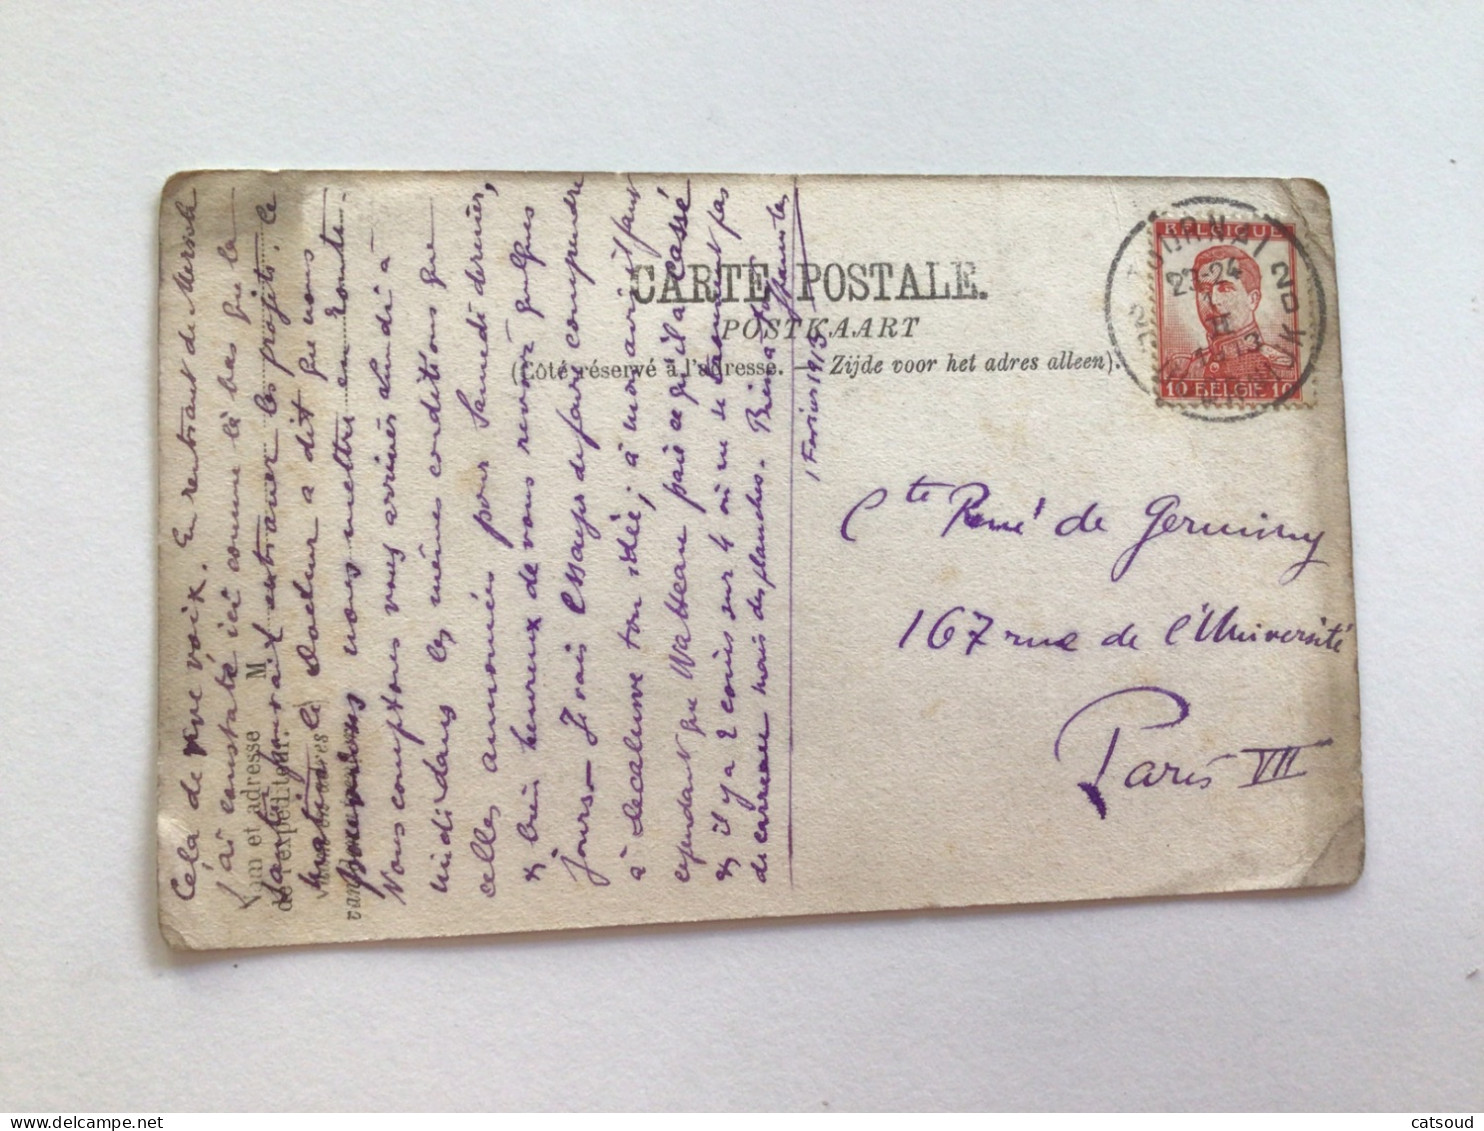 CARTE POSTALE.
POSTKAART
(Côté réservé à l'adresse. — Zijde voor het adres alleen).
BELGIQUE
10 BELGIE 10
TOURNAI 2
23-24
1
II
1913
DOORNIK 2
Cte René de Germiny
167 rue de l'Université
Paris VII
1 Février 1913
Nom et adresse M
de l'expéditeur.
Cela de vive voix. En rentrant de
j'ai constaté ici comme là bas que la
entraver les projets. Ce
le docteur a dit que nous
nous mettre en route.
Nous comptons vous arriver Lundi à
midi dans les mêmes conditions que
celles annoncées pour Samedi dernier,
& bien heureux de vous revoir quelques
jours — Je vais essayer de faire comprendre
à ton idée; à mon avis il faut
cependant que Watteau paie ce qu'il a cassé
& il y a 2 coins sur 4 où ne pas
de carreau mais des planches. Bien à
catsoud